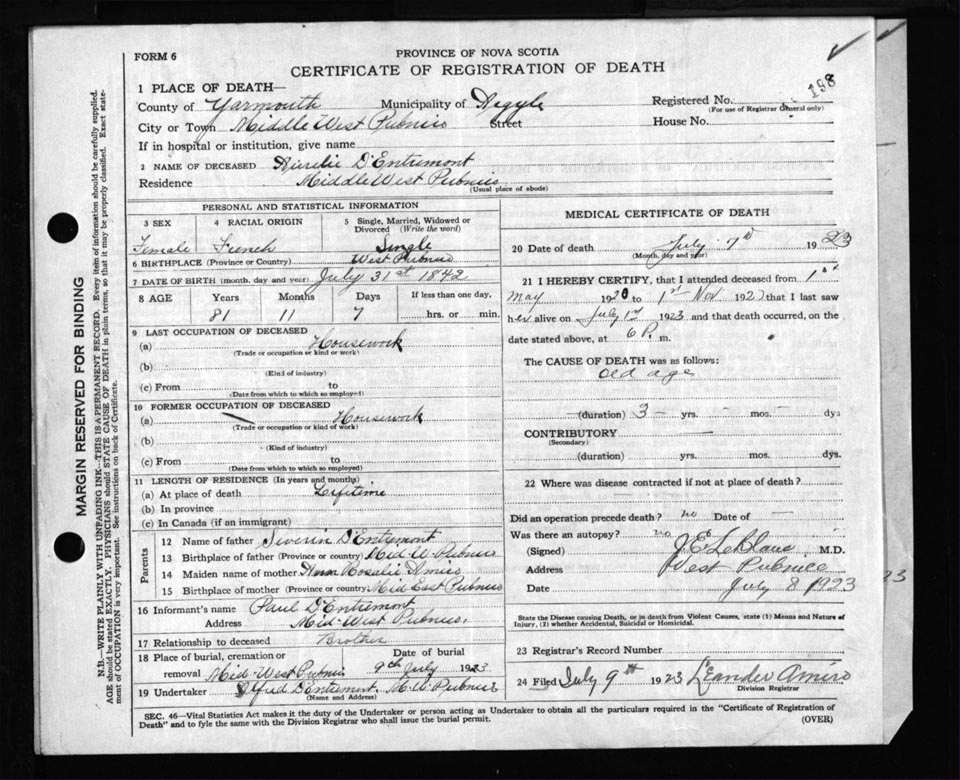 FORM 6
PROVINCE OF NOVA SCOTIA
CERTIFICATE OF REGISTRATION OF DEATH
198
1 PLACE OF DEATH—
County of Yarmouth Municipality of Argyle Registered No.
(For use of Registrar General only)
City or Town Middle West Pubnico Street House No.
If in hospital or institution, give name
2 NAME OF DECEASED D'Entremont
Residence Middle West Pubnico
(Usual place of abode)
PERSONAL AND STATISTICAL INFORMATION
3 SEX 4 RACIAL ORIGIN 5 Single, Married, Widowed or Divorced (Write the word)
Female French Single
6 BIRTHPLACE (Province or Country) West Pubnico
7 DATE OF BIRTH (month, day and year) July 31st 1842
8 AGE Years Months Days If less than one day,
81 11 7 hrs. or min.
9 LAST OCCUPATION OF DECEASED
(a) Housework
(Trade or occupation or kind or work)
(b)
(Kind of industry)
(c) From to
(Date from which to which so employed)
10 FORMER OCCUPATION OF DECEASED
(a) Housework
(Trade or occupation or kind of work)
(b)
(Kind of industry)
(c) From to
(Date from which to which so employed)
11 LENGTH OF RESIDENCE (In years and months)
(a) At place of death Lifetime
(b) In province
(c) In Canada (if an immigrant)
Parents
12 Name of father Severin D'Entremont
13 Birthplace of father (Province or country) Mid. W. Pubnico
14 Maiden name of mother Ann Rosalie Amiro
15 Birthplace of mother (Province or country) Mid East Pubnico
16 Informant's name Paul D'Entremont
Address Mid-West Pubnico.
17 Relationship to deceased Brother
18 Place of burial, cremation or removal Date of burial
Mid-West Pubnico 9th July 1923
19 Undertaker Alfred D'Entremont. M.W. Pubnico
(Name and Address)
MEDICAL CERTIFICATE OF DEATH
20 Date of death July 7th 1923
(Month, day and year)
21 I HEREBY CERTIFY, that I attended deceased from 1st
May 1920 to 1st Nov. 192 that I last saw
her alive on July 1st 1923 and that death occurred, on the
date stated above, at 6 P. m.
The CAUSE OF DEATH was as follows:
Old age
(duration) 3 – yrs. – mos. – dys
CONTRIBUTORY —
(Secondary)
(duration) yrs. mos. dys.
22 Where was disease contracted if not at place of death?
Did an operation precede death? no Date of —
Was there an autopsy? no
(Signed) J.E. LeBlanc M.D.
Address West Pubnico
Date July 8 1923
23
State the Disease causing Death, or in death from Violent Causes, state (1) Means and Nature of
Injury, (2) whether Accidental, Suicidal or Homicidal.
23 Registrar's Record Number
24 Filed July 9th 1923 Leander Amiro
Division Registrar
SEC. 46—Vital Statistics Act makes it the duty of the Undertaker or person acting as Undertaker to obtain all the particulars required in the "Certificate of Registration of
Death" and to fyle the same with the Division Registrar who shall issue the burial permit.
(OVER)
MARGIN RESERVED FOR BINDING
N.B.—WRITE PLAINLY WITH UNFADING INK—THIS IS A PERMANENT RECORD. Every item of information should be carefully supplied.
AGE should be stated EXACTLY. PHYSICIANS should STATE CAUSE OF DEATH in plain terms, so that it may be properly classified. Exact state-
ment of OCCUPATION is very important. See instructions on back of Certificate.